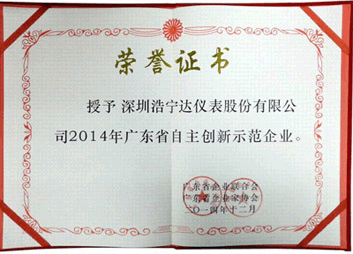 荣誉证书
授予 深圳浩宁达仪表股份有限公
司2014年广东省自主创新示范企业。
广东省企业联合会
广东省企业家协会
二〇一四年十二月